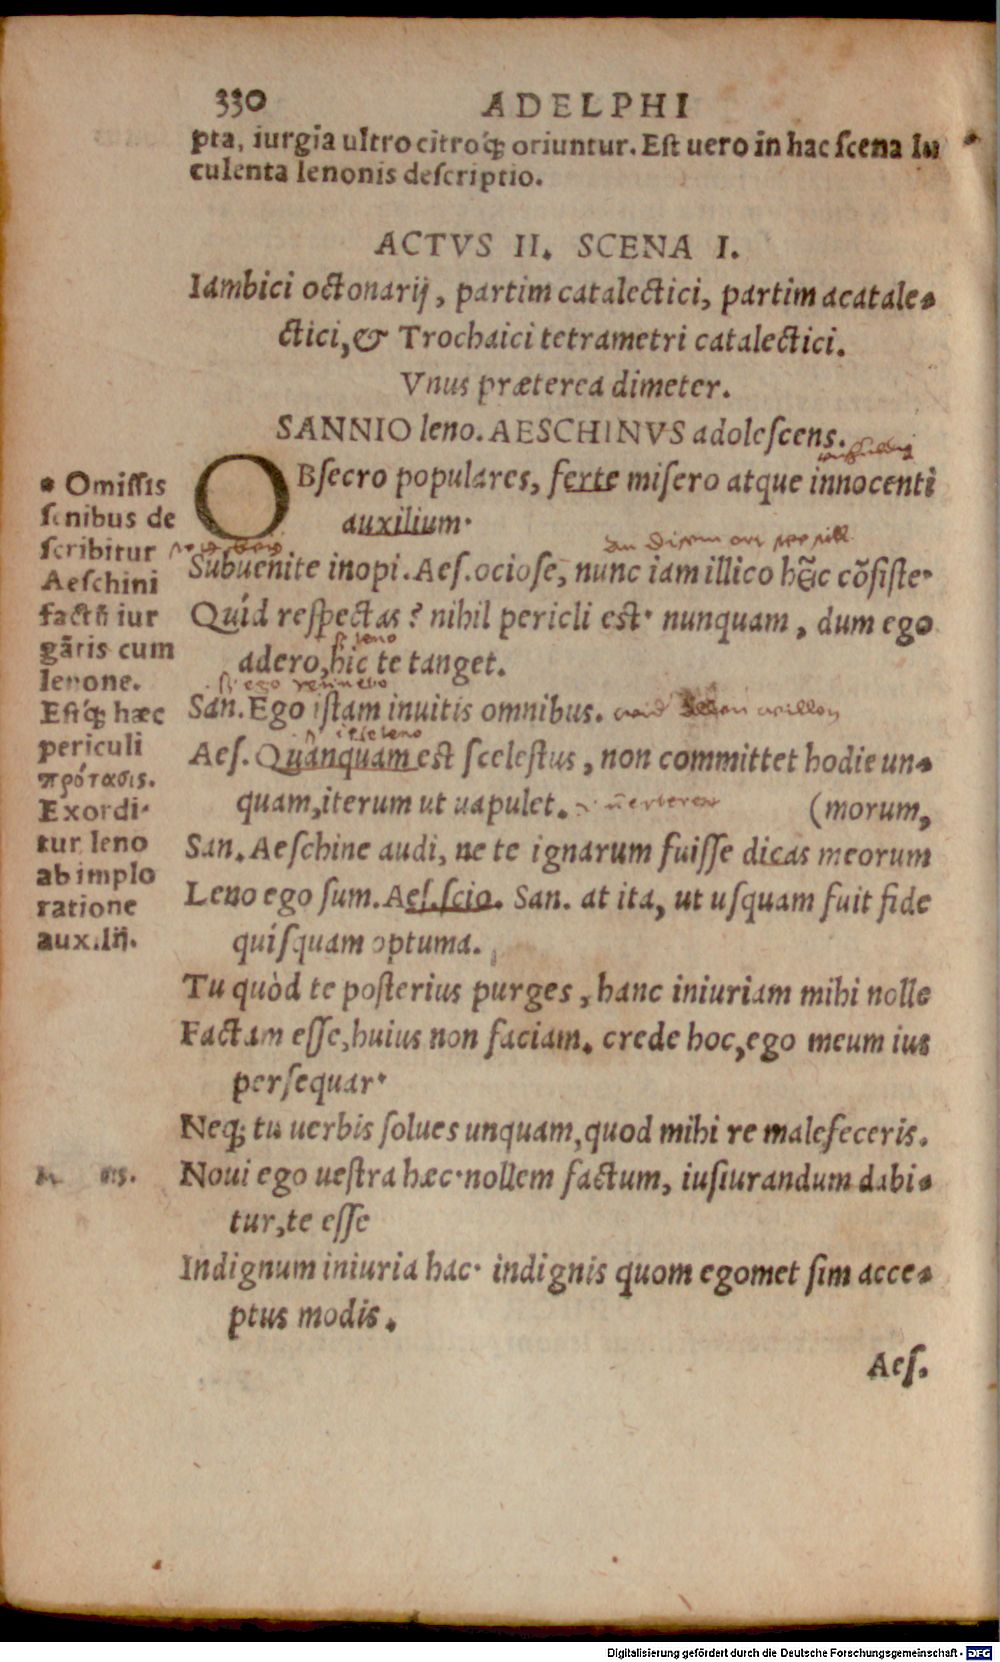 330 ADELPHI
pta, iurgia ultro citroq́; oriuntur. Est uero in hac scena lu
culenta lenonis descriptio.
ACTVS II. SCENA I.
Iambici octonarij, partim catalectici, partim acatale-
ctici, & Trochaici tetrametri catalectici.
Vnus præterea dimeter.
SANNIO leno. AESCHINVS adolescens.
OBsecro populares, ferte misero atque innocenti
auxilium.
Subuenite inopi. Aes. ociose, nunc iam illico hĩc cõsiste.
Quid respectas? nihil pericli est. nunquam, dum ego
s. leno
adero, hic te tanget.
s. ego
San. Ego istam inuitis omnibus.
leno
Aes. Quanquam est scelestus, non committet hodie un-
quam, iterum ut uapulet. (morum,
San. Aeschine audi, ne te ignarum fuisse dicas meorum
Leno ego sum. Aes. scio. San. at ita, ut usquam fuit fide
quisquam optuma.
Tu quòd te posterius purges, hanc iniuriam mihi nolle
Factam esse, huius non faciam. crede hoc, ego meum ius
persequar.
Neq; tu uerbis solues unquam, quod mihi re malefeceris.
Noui ego uestra hæc. nollem factum, iusiurandum dabi-
tur, te esse
Indignum iniuria hac. indignis quom egomet sim acce-
ptus modis.
Aes.
* Omissis
senibus de
scribitur
Aeschini
factũ iur
gãtis cum
lenone.
Estq́; hæc
periculi
πρότασις.
Exordi-
tur leno
ab implo
ratione
auxilij.